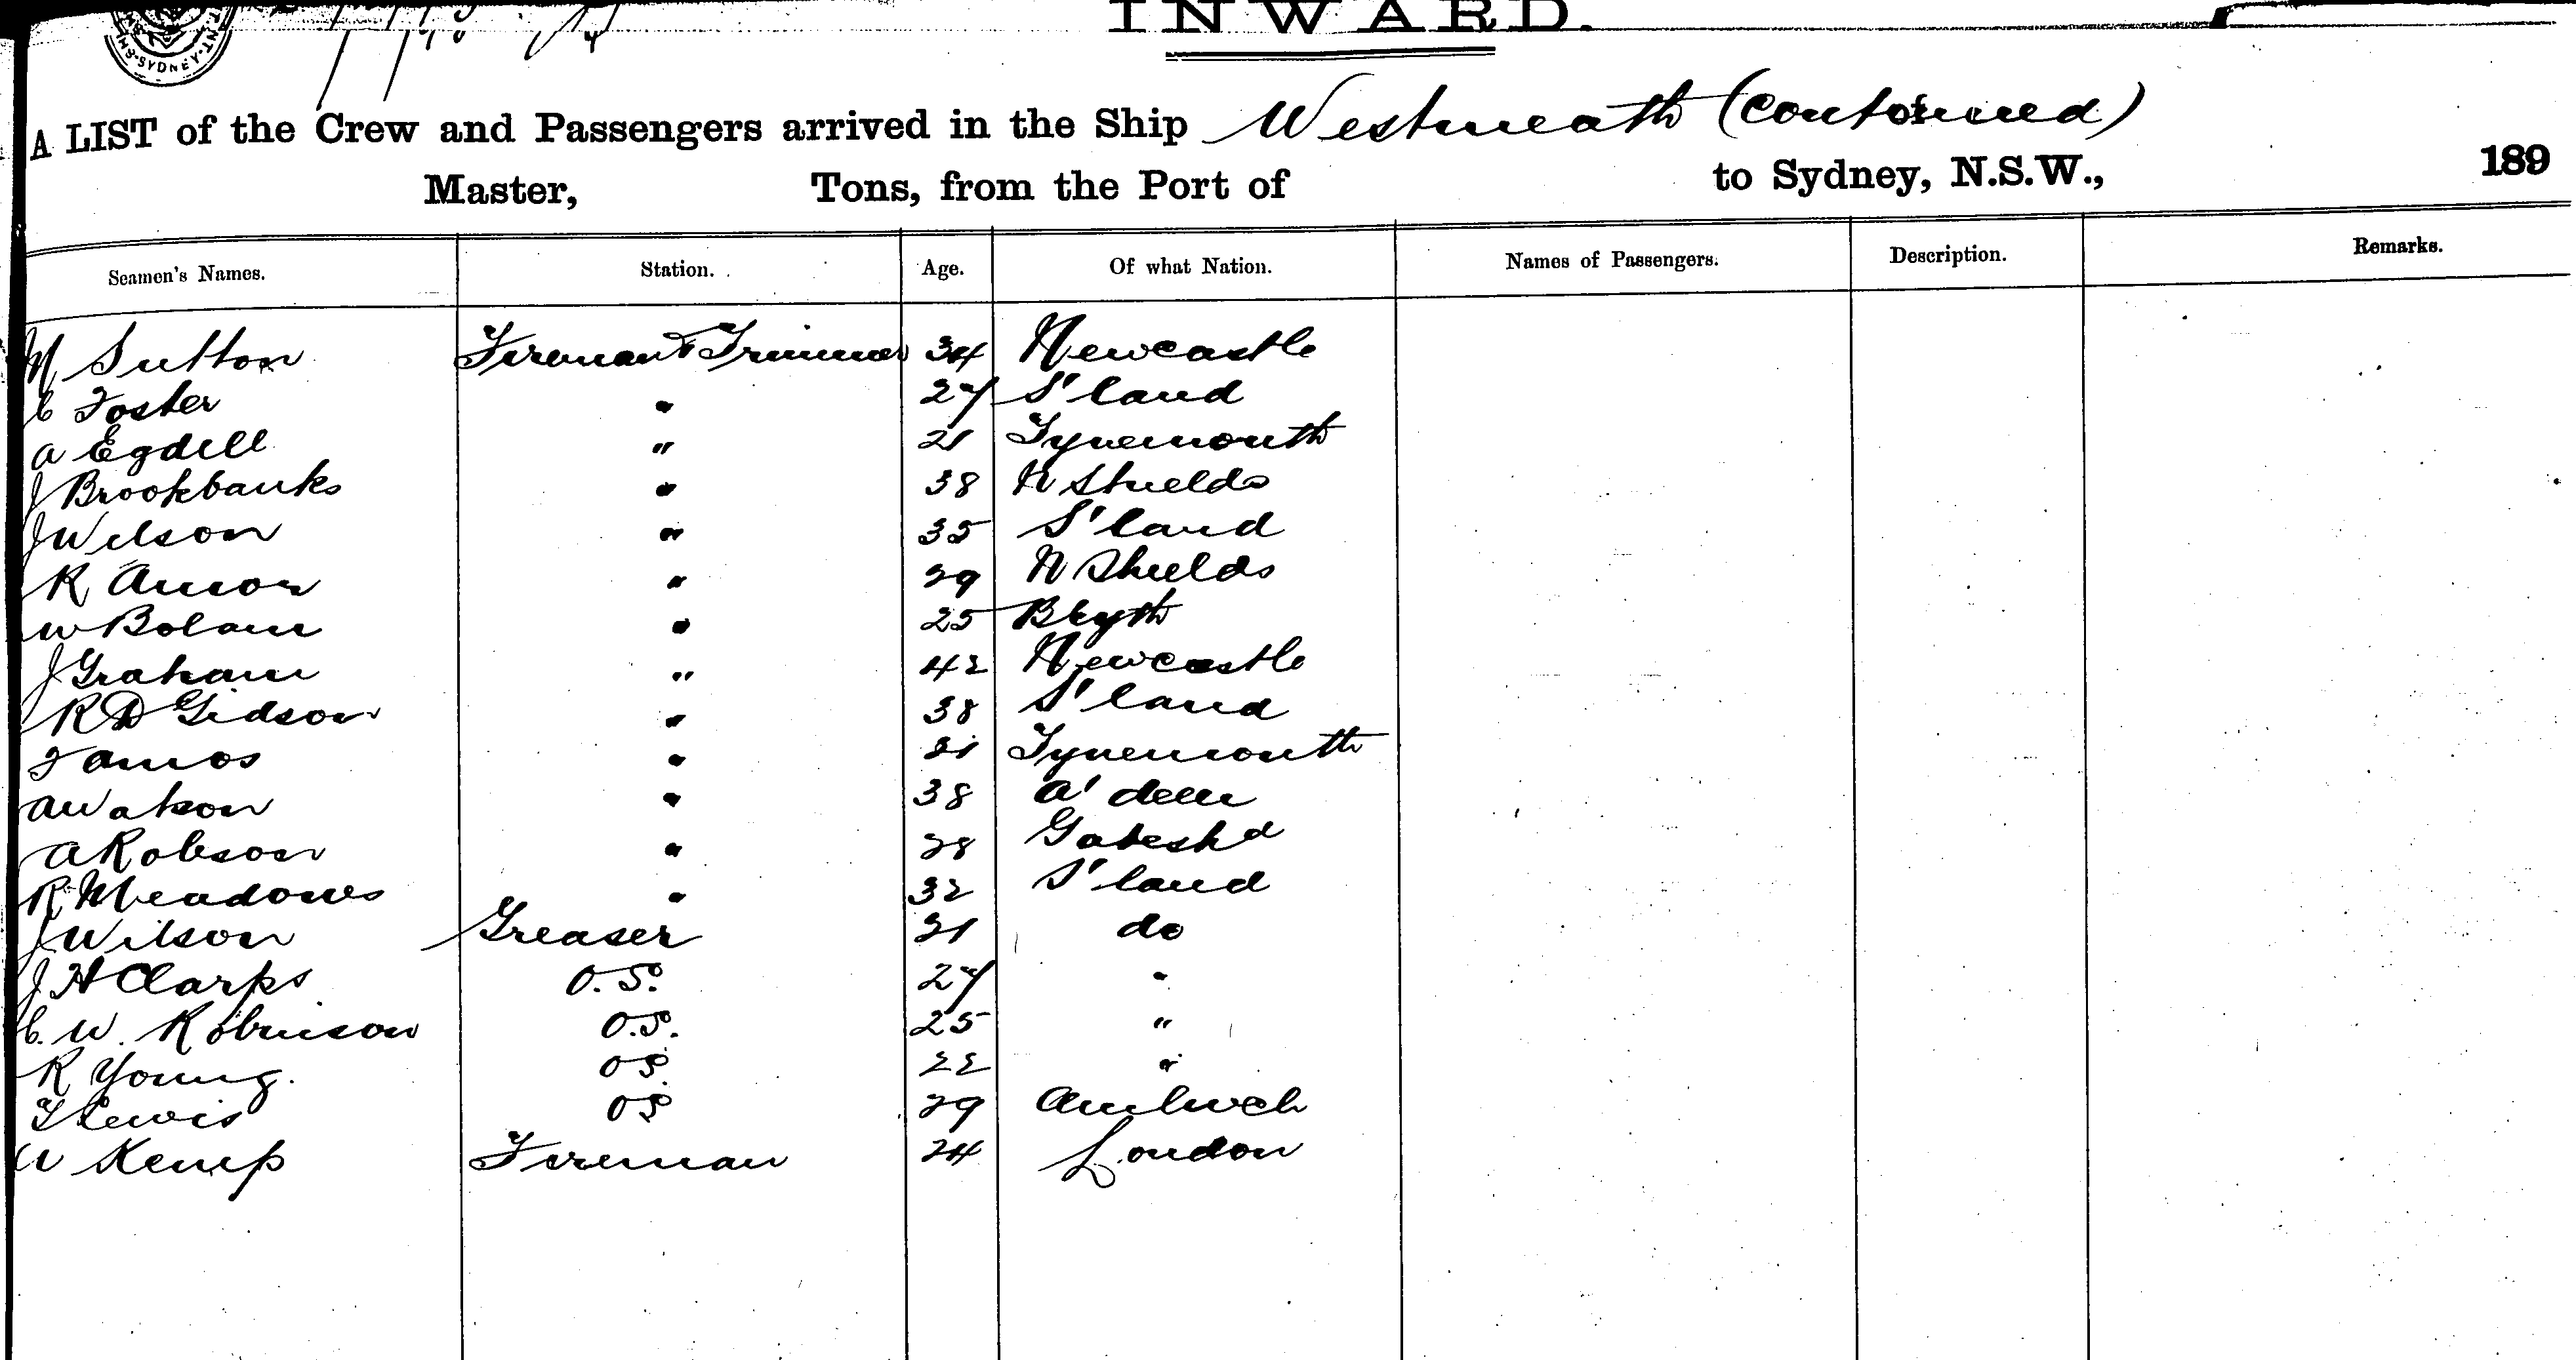 SYDNEY
INWARD.
A LIST of the Crew and Passengers arrived in the Ship Westmeath (continued)
Master, Tons, from the Port of to Sydney, N.S.W., 189
Seamen's Names. Station. Age. Of what Nation. Names of Passengers. Description. Remarks.
M Sutton Fireman & Trimmer 34 Newcastle
C Foster " 27 S'land
A Egdell " 21 Tynemouth
J Brookbanks " 38 N Shields
J Wilson " 35 S'land
R Amos " 29 N Shields
W Bolam " 25 Blyth
J Graham " 42 Newcastle
R D Gidson " 38 S'land
F Amos " 21 Tynemouth
A Watson " 38 A'deen
A Robson " 28 Gatesh'd
R Meadows " 32 S'land
J Wilson Greaser 31 do
J H Clarps O.S. 27 "
C. W. Robinson O.S. 25 "
R Young. OS. 22 "
T Lewis OS 29 Amlwch
Kemp Fireman 24 London